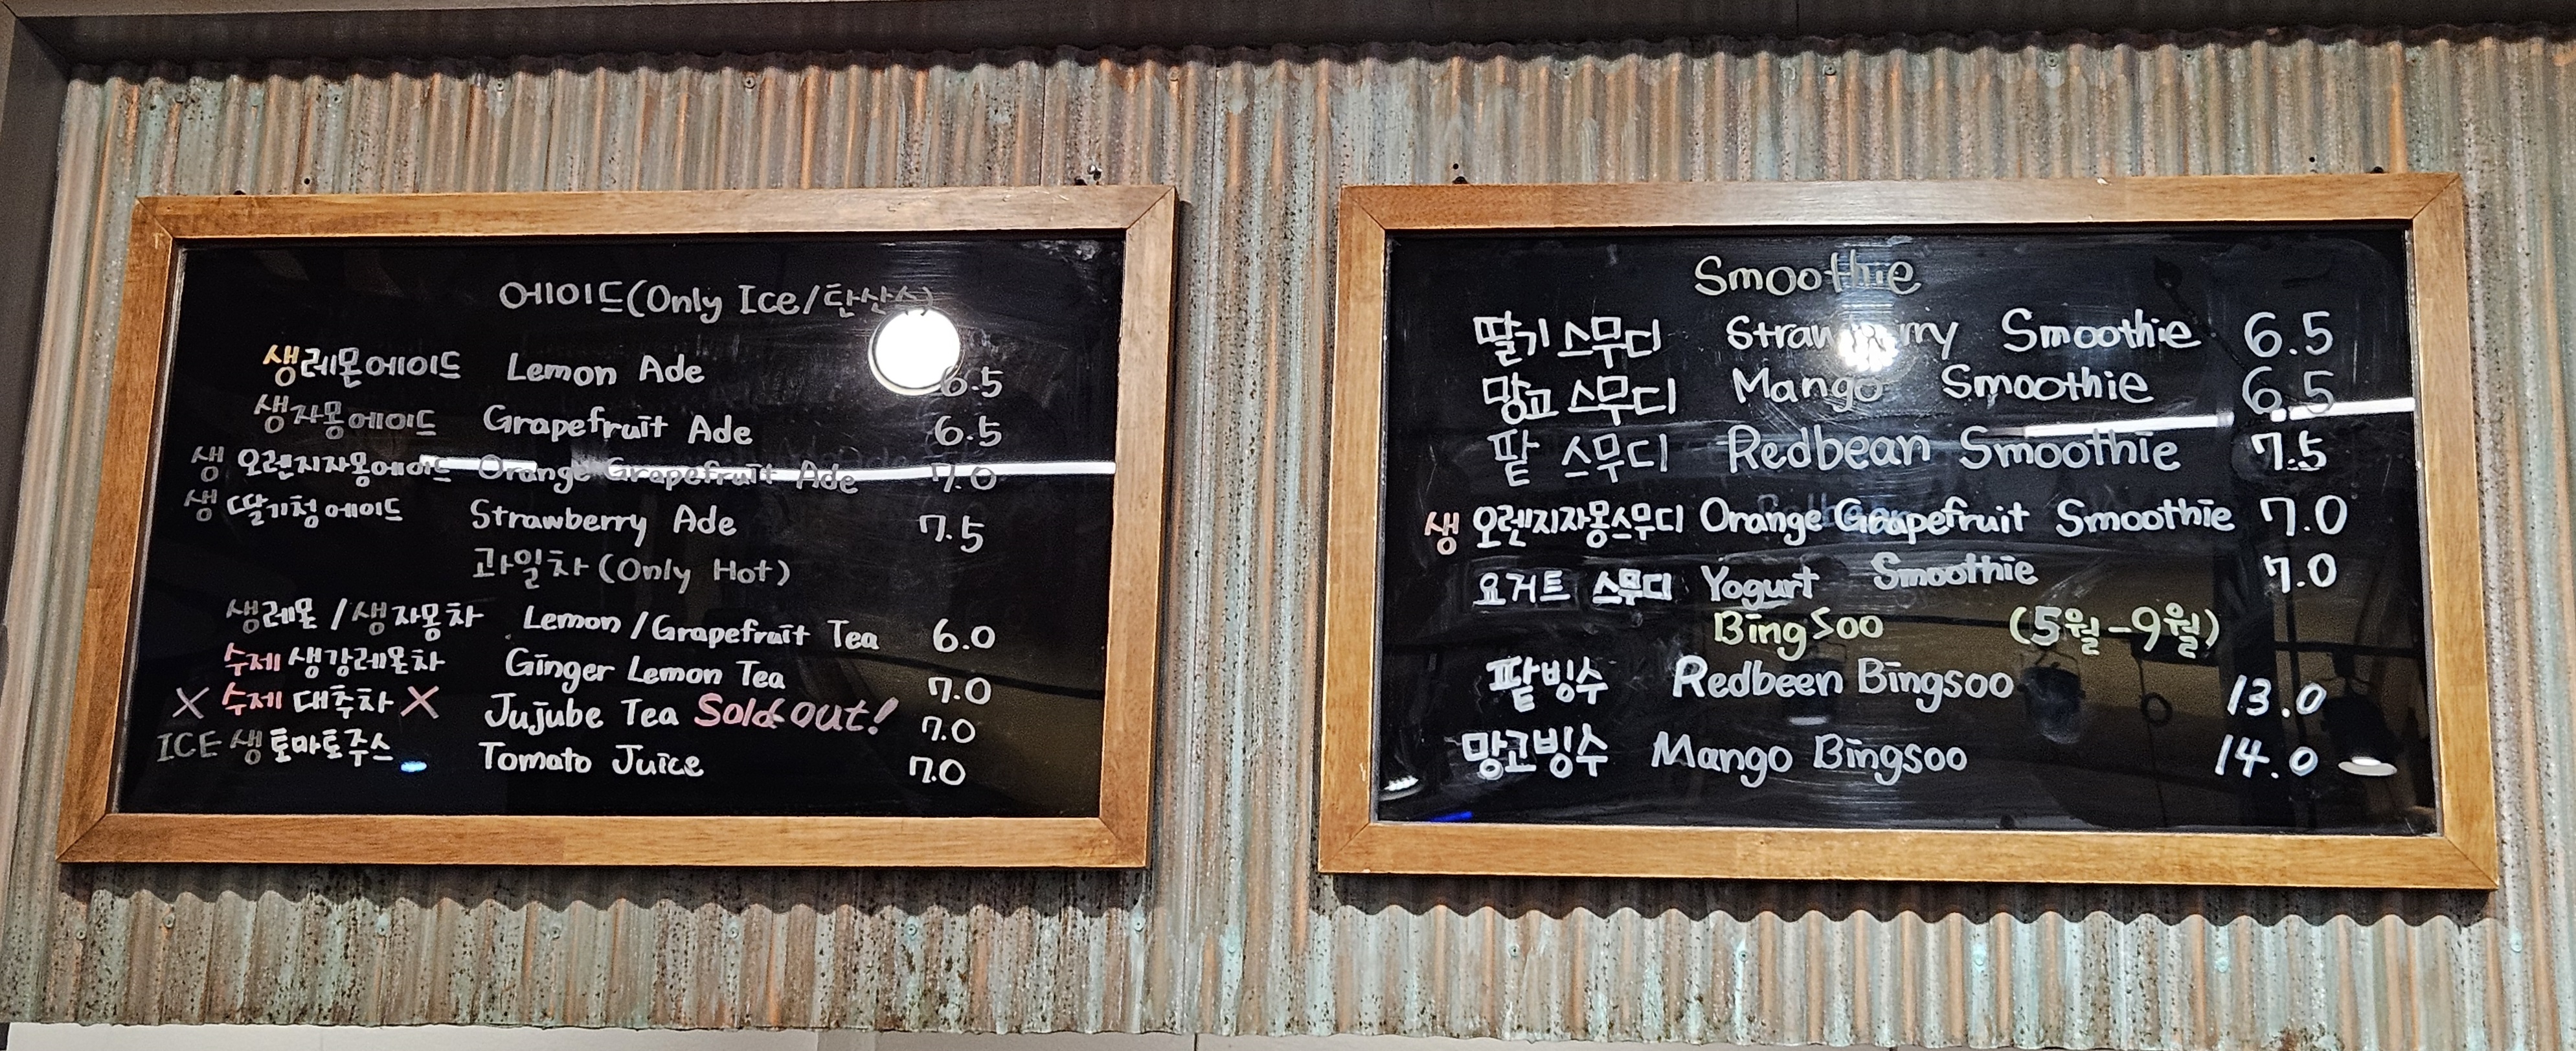 에이드(Only Ice/탄산수)
생레몬에이드 Lemon Ade 6.5
생자몽에이드 Grapefruit Ade 6.5
생 오렌지자몽에이드 Orange Grapefruit Ade 7.0
생 딸기청에이드 Strawberry Ade 7.5
과일차(Only Hot)
생레몬/생자몽차 Lemon/Grapefruit Tea 6.0
수제 생강레몬차 Ginger Lemon Tea 7.0
X 수제 대추차 X Jujube Tea Sold out! 7.0
ICE 생토마토주스 Tomato Juice 7.0
Smoothie
딸기 스무디 Strawberry Smoothie 6.5
망고 스무디 Mango Smoothie 6.5
팥 스무디 Redbean Smoothie 7.5
생 오렌지자몽스무디 Orange Grapefruit Smoothie 7.0
요거트 스무디 Yogurt Smoothie 7.0
BingSoo (5월-9월)
팥빙수 Redbeen Bingsoo 13.0
망고빙수 Mango Bingsoo 14.0